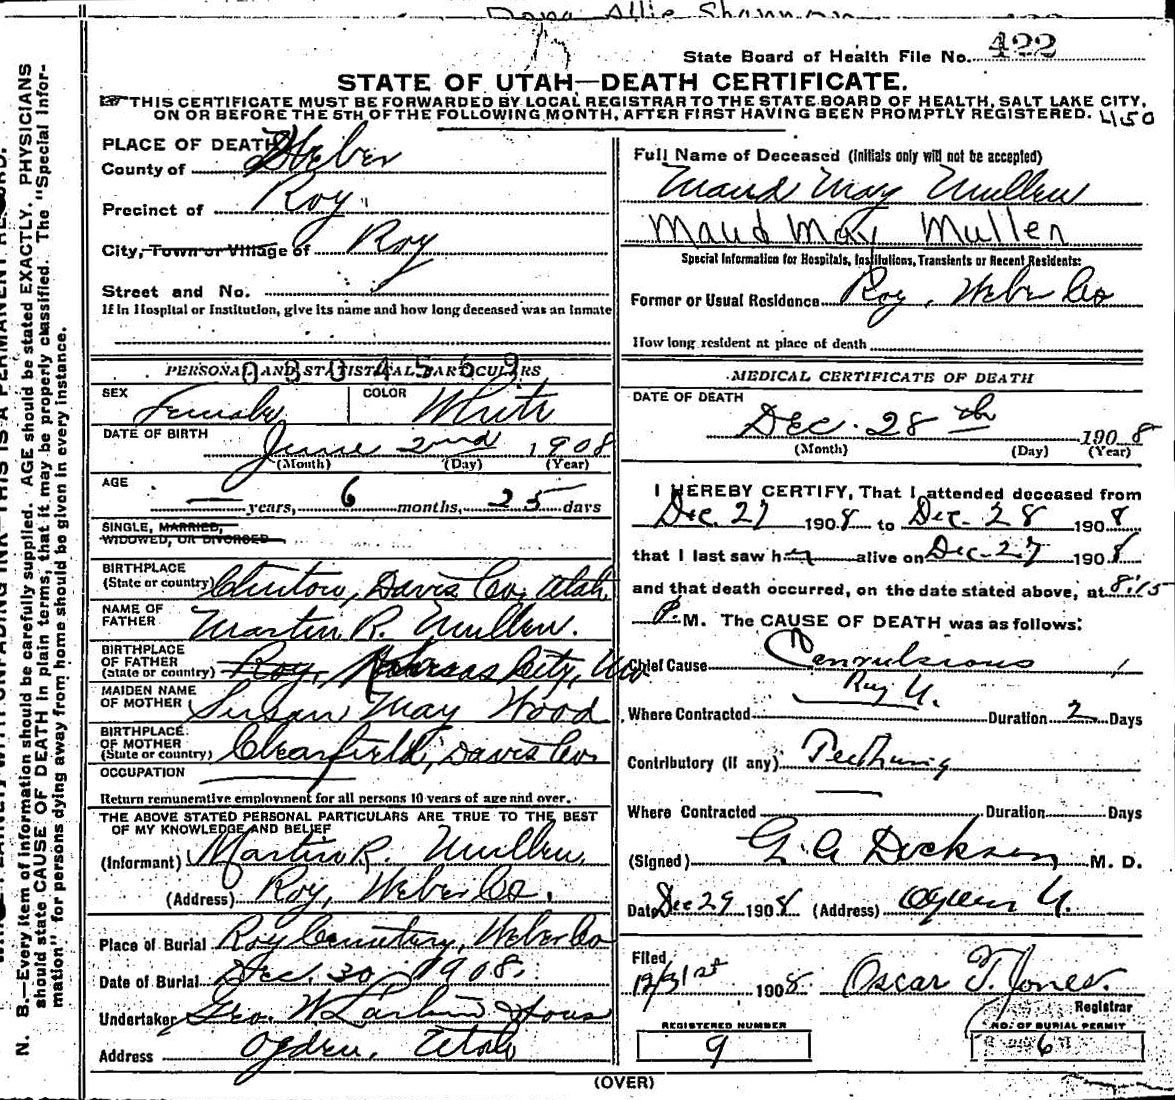 Dona Allie Shannon
State Board of Health File No. 422
STATE OF UTAH—DEATH CERTIFICATE.
THIS CERTIFICATE MUST BE FORWARDED BY LOCAL REGISTRAR TO THE STATE BOARD OF HEALTH, SALT LAKE CITY,
ON OR BEFORE THE 5TH OF THE FOLLOWING MONTH, AFTER FIRST HAVING BEEN PROMPTLY REGISTERED. 450
PLACE OF DEATH
County of Weber
Precinct of Roy
City, Town or Village of Roy
Street and No.
If in Hospital or Institution, give its name and how long deceased was an inmate
PERSONAL AND STATISTICAL PARTICULARS
0 8 0 4 5 6 9
SEX Female COLOR White
DATE OF BIRTH June 2nd 1908
(Month) (Day) (Year)
AGE
— years, 6 months, 25 days
SINGLE, MARRIED,
WIDOWED, OR DIVORCED
BIRTHPLACE
(State or country) Clinton, Davis Co, Utah
NAME OF
FATHER Martin R. Mullen.
BIRTHPLACE
OF FATHER
(State or country) Roy, Kansas City, Mo
MAIDEN NAME
OF MOTHER Susan May Wood
BIRTHPLACE
OF MOTHER
(State or country) Clearfield, Davis Co.
OCCUPATION
Return remunerative employment for all persons 10 years of age and over.
THE ABOVE STATED PERSONAL PARTICULARS ARE TRUE TO THE BEST
OF MY KNOWLEDGE AND BELIEF
(Informant) Martin R. Mullen
(Address) Roy, Weber Co.
Place of Burial Roy Cemetery, Weber Co
Date of Burial Dec. 30, 1908.
Undertaker Geo. W. Larkin & Sons
Address Ogden, Utah
Full Name of Deceased (Initials only will not be accepted)
Maud May Mullen
Maud May Mullen
Special Information for Hospitals, Institutions, Transients or Recent Residents:
Former or Usual Residence Roy, Weber Co
How long resident at place of death
MEDICAL CERTIFICATE OF DEATH
DATE OF DEATH
Dec. 28th 1908
(Month) (Day) (Year)
I HEREBY CERTIFY, That I attended deceased from
Dec. 27 1908 to Dec. 28 1908
that I last saw her alive on Dec. 27 1908
and that death occurred, on the date stated above, at 8:15
P. M. The CAUSE OF DEATH was as follows:
Chief Cause Convulsions
Roy U.
Where Contracted Duration 2 Days
Contributory (If any) Teething
Where Contracted Duration Days
(Signed) G. A. Dickson M. D.
Date Dec 29 1908 (Address) Ogden U.
Filed
12/31st 1908. Oscar T. Jones.
Registrar
REGISTERED NUMBER
9
NO. OF BURIAL PERMIT
6
(OVER)
N. B.—Every item of information should be carefully supplied. AGE should be stated EXACTLY. PHYSICIANS
should state CAUSE OF DEATH in plain terms, that it may be properly classified. The "Special Infor-
mation" for persons dying away from home should be given in every instance.